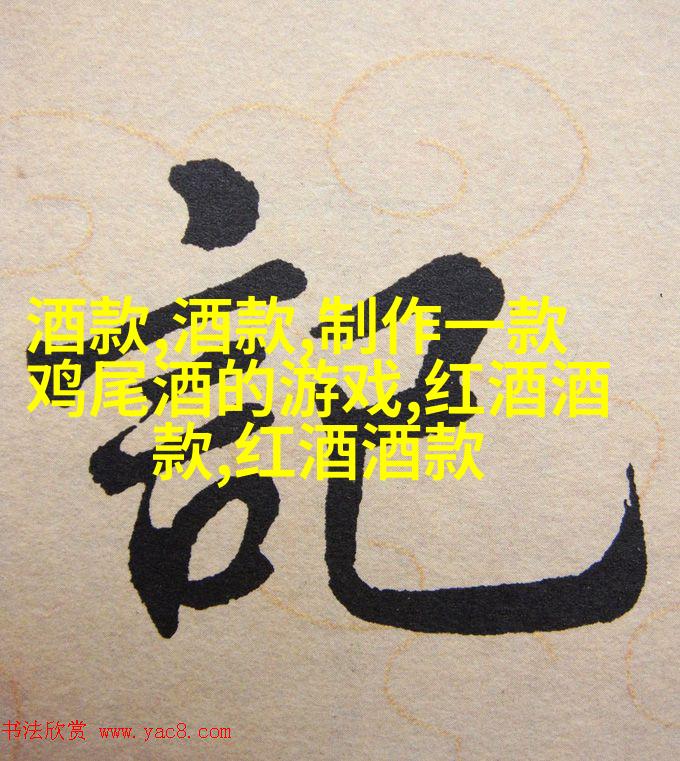 記
酒款,酒款,制作一款
鸡尾酒的游戏,红酒酒
款,红酒酒款
书法欣赏 www.yac8.com